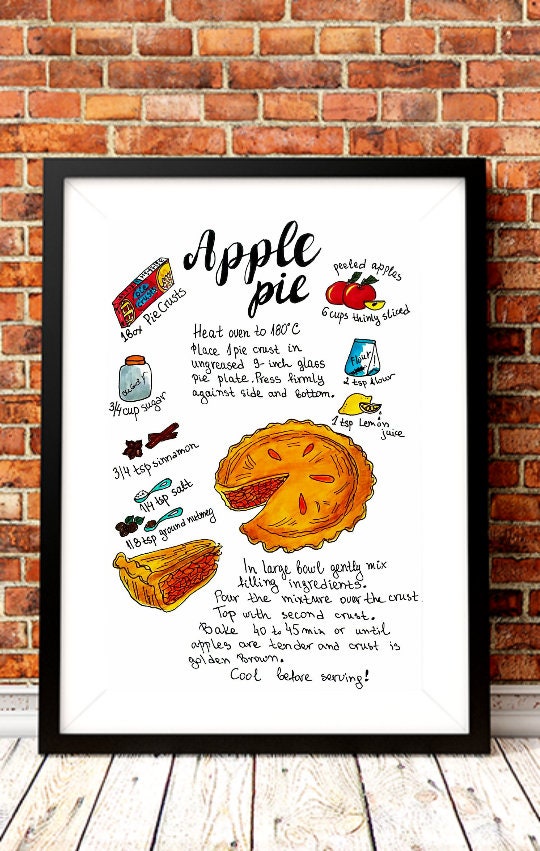 Apple
pie
1 Box Pie Crusts
peeled apples
6 cups thinly sliced
Heat oven to 180°C
Place 1 pie crust in
ungreased 9-inch glass
pie plate. Press firmly
against side and bottom.
3/4 cup sugar
Flour
2 tsp flour
1 tsp Lemon
juice
3/4 tsp sinnamon
1/4 tsp salt
1/8 tsp ground nutmeg
In large bowl gently mix
filling ingredients.
Pour the mixture over the crust
Top with second crust.
Bake 40 to 45 min or until
apples are tender and crust is
golden Brown.
Cool before serving!